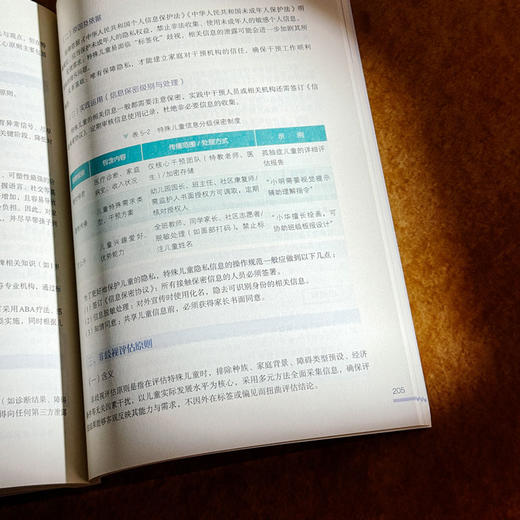 法与观点，暂停转
心原则主要包括
原则。
育异常信号，尽早
关键阶段，降低对
可塑性最强的阶
握语言、社交等基
增加，且容易导
负担。因此，对
，并尽早带孩子到
牌相关知识（如）
各专业机构，通过标
采用ABA疗法、感
实施，同时根据儿
（如诊断结果、障碍
得向任何第三方泄露
（二）原因及依据
《中华人民共和国个人信息保护法》《中华人民共和国未成年人保护法》明
保护未成年人的隐私权益，禁止非法收集、使用未成年人的敏感个人信息。
特殊儿童易面临“标签化”歧视，相关信息的泄露可能会进一步加剧其所
唯有保障隐私，才能建立家庭对干预机构的信任，确保干预工作顺利
（三）实践运用（信息保密级别与处理）
特殊儿童的相关信息一般都需要注意保密，实践中干预人员或相关机构还需签订《信
定期审核信息使用记录，杜绝非必要信息的收集。
▼ 表5-2 特殊儿童信息分级保密制度
包含内容 传播范围/处理方式 示例
医疗诊断、家庭 仅核心干预团队（特教老师、医 孤独症儿童的详细评
病史、收入状况 生）/加密存储 估报告
儿童特殊需求类 幼儿园园长、班主任、社区康复师/ “小明需要视觉提示
型、干预方案 需监护人书面授权方可调取，定期 辅助理解指令”
核对授权人
儿童兴趣爱好、 全班教师、同学家长、社区志愿者/ “小华擅长绘画，可
优势能力 脱敏处理（如面部打码），禁止标 协助班级板报设计”
注儿童姓名
为了更好地保护儿童的隐私，特殊儿童隐私信息的操作规范一般应做到以下几点：
（1）签订《信息保密协议》：所有接触保密信息的人员必须签署。
（2）信息脱敏处理：对外宣传时使用化名，隐去可识别身份的相关信息。
（3）知情同意：共享儿童信息前，必须获得家长书面同意。
三、非歧视评估原则
（一）含义
非歧视评估原则是指在评估特殊儿童时，排除种族、家庭背景、障碍类型预设、经济
条件等无关因素干扰，以儿童实际发展水平为核心，采用多元方法全面采集信息，确保评
估结果能够客观反映其能力与需求，不因外在标签或偏见而扭曲评估结论。
205